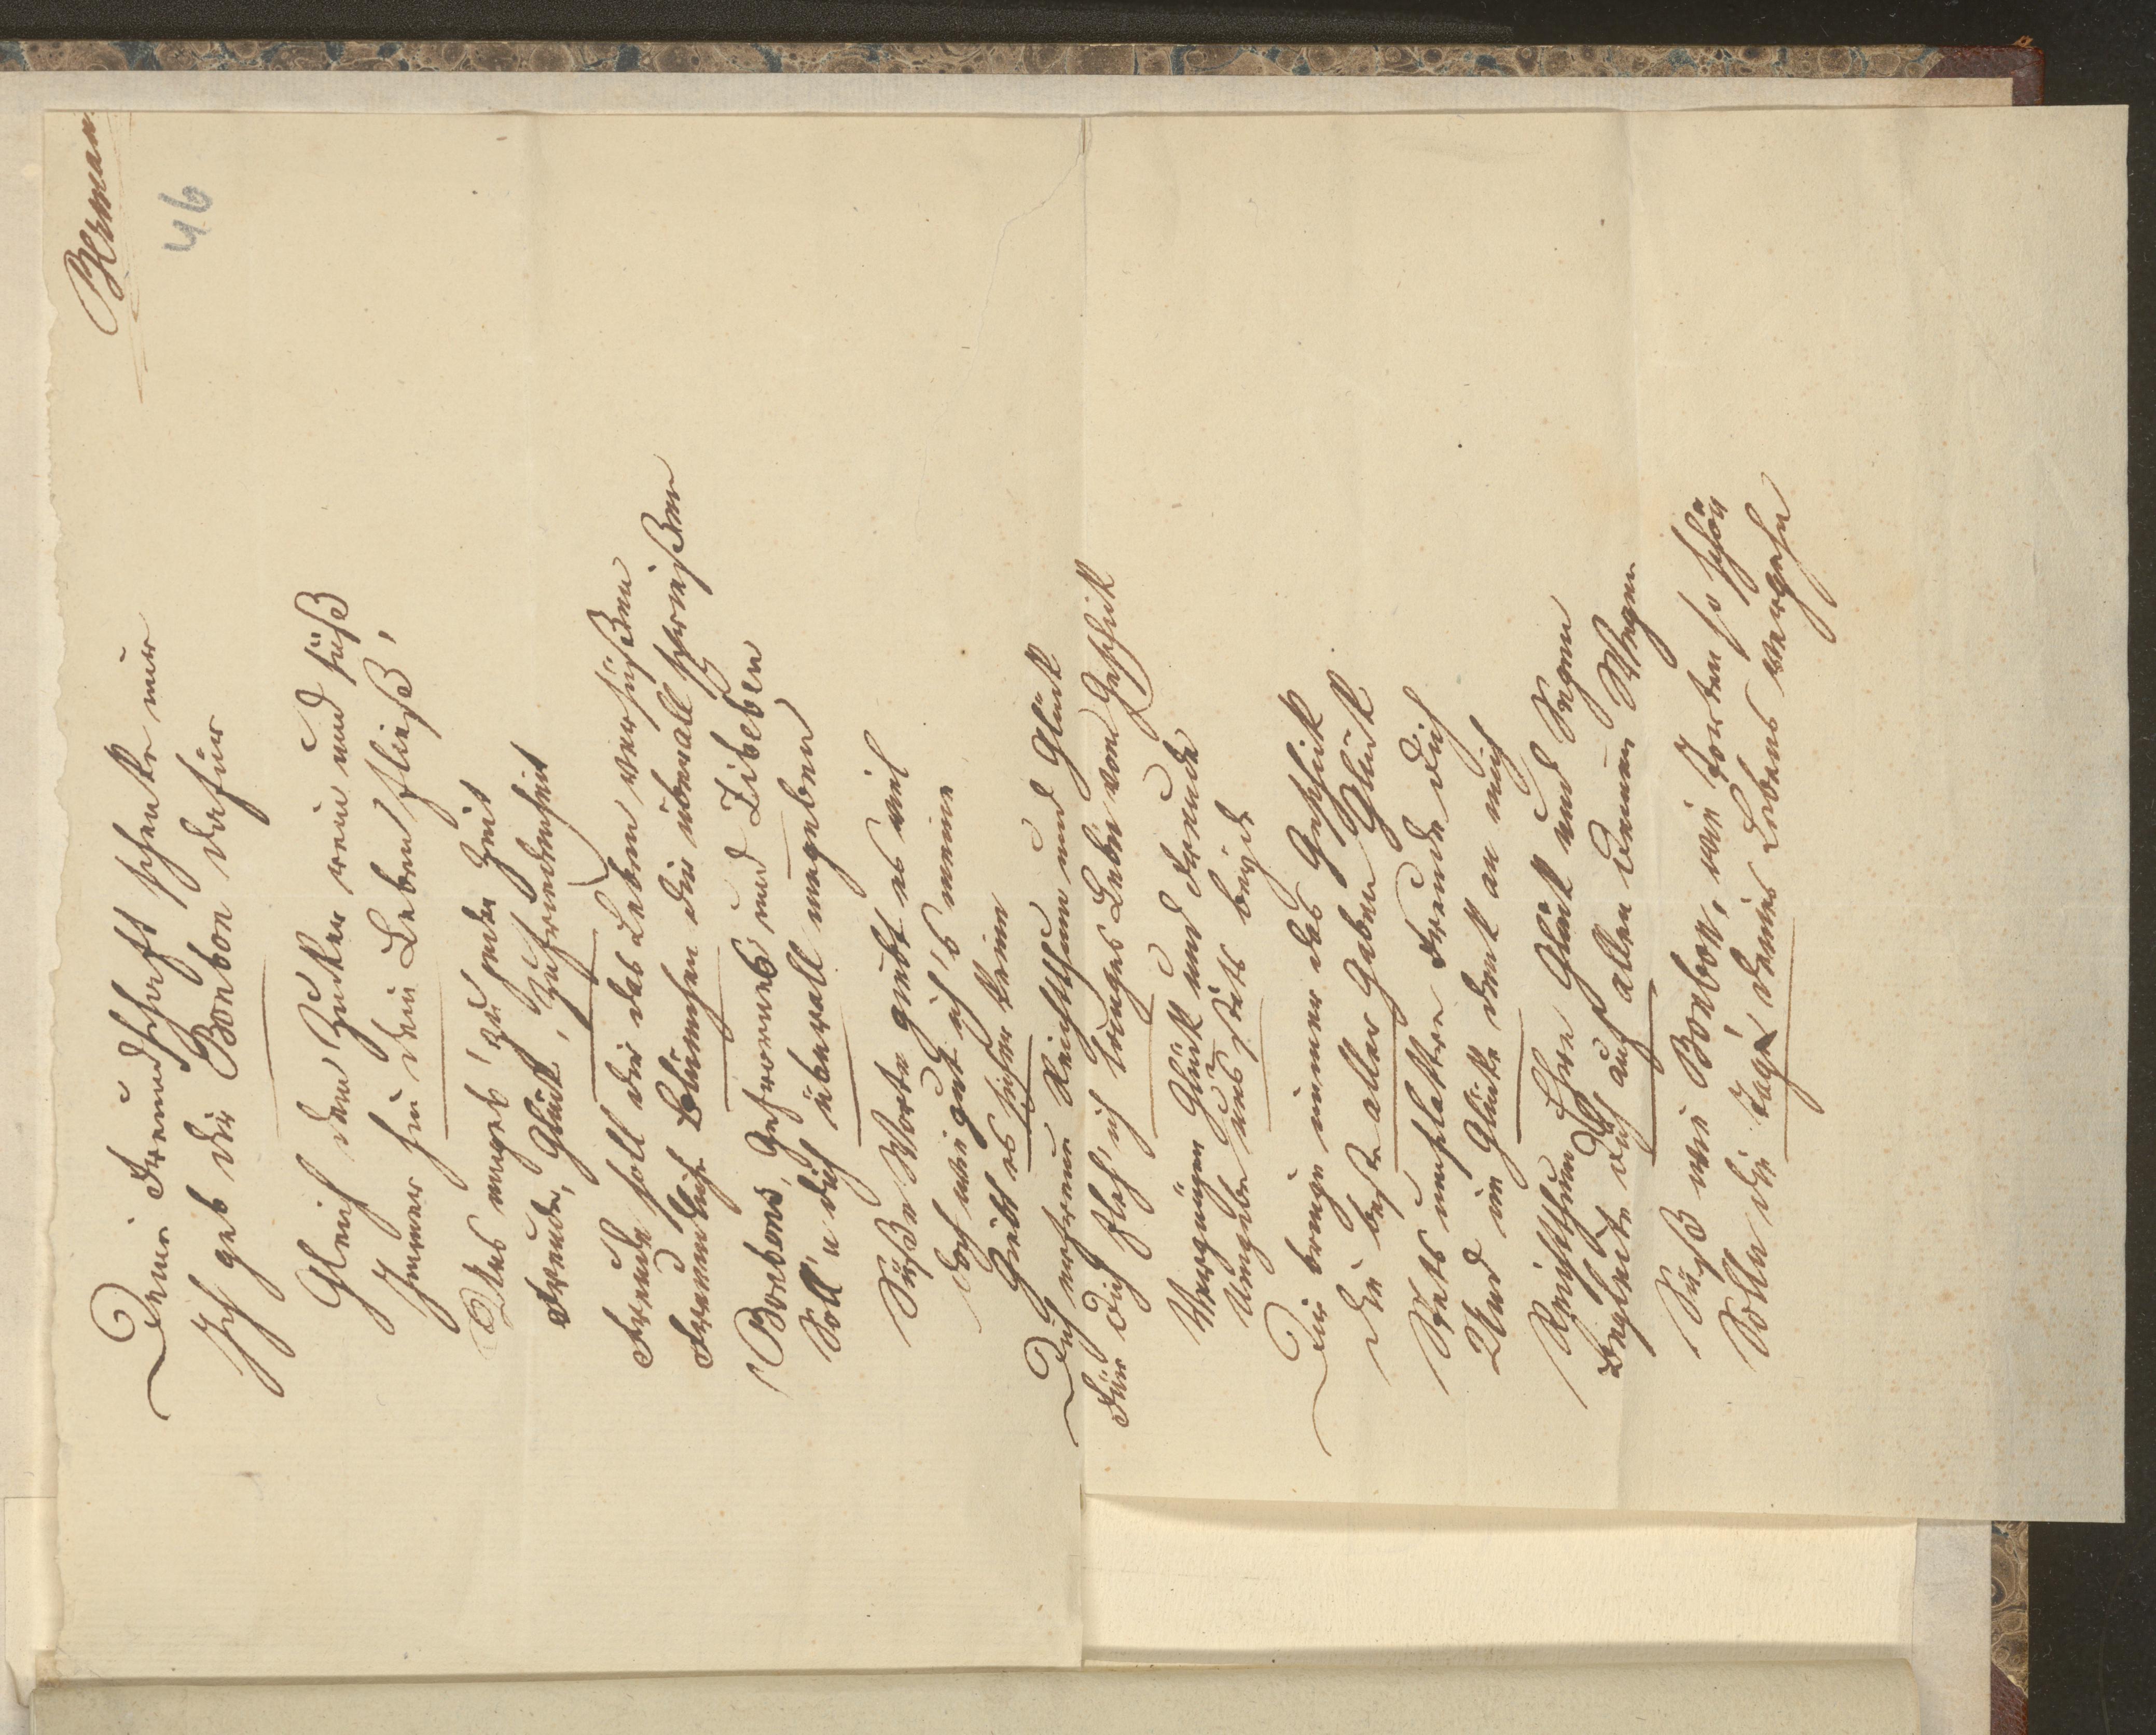 Bleman
46
Deine Freundschaft schenke mir
Ich geb dir Bonbon dafür
Gleich dem Zucker rein und süß
Immer hin dein Leben fließ,
Dich umgeb' zu jeder Zeit
Freude, Glück, Zufriedenheit
Freude soll dir das Leben versüßen
Freundlich Blümchen dir überall sprießen
Bonbons, Gefrornes und Zibeben
Soll'n dich überall umgeben
Süße Worte giebt es viel
Doch wie gut ich's meine
Giebt es sicher keine
Dich erfreue Reichthum und Glück
Für dich fleh' ich langes Leben vom Geschick
Vergnügen Glück und Freude
Umgebe uns stets beyde
Dir bringe immer das Geschick
Die beste aller Gaben Glück
Stets umflattre Freude dich
Und im Glücke denk an mich
Reichthum Ehre Glück und Segen
Begleite dich auf allen deinen Wegen
Süß wie Bonbon, wie Torten so schön
Solln die Tage deines Lebens vergehn